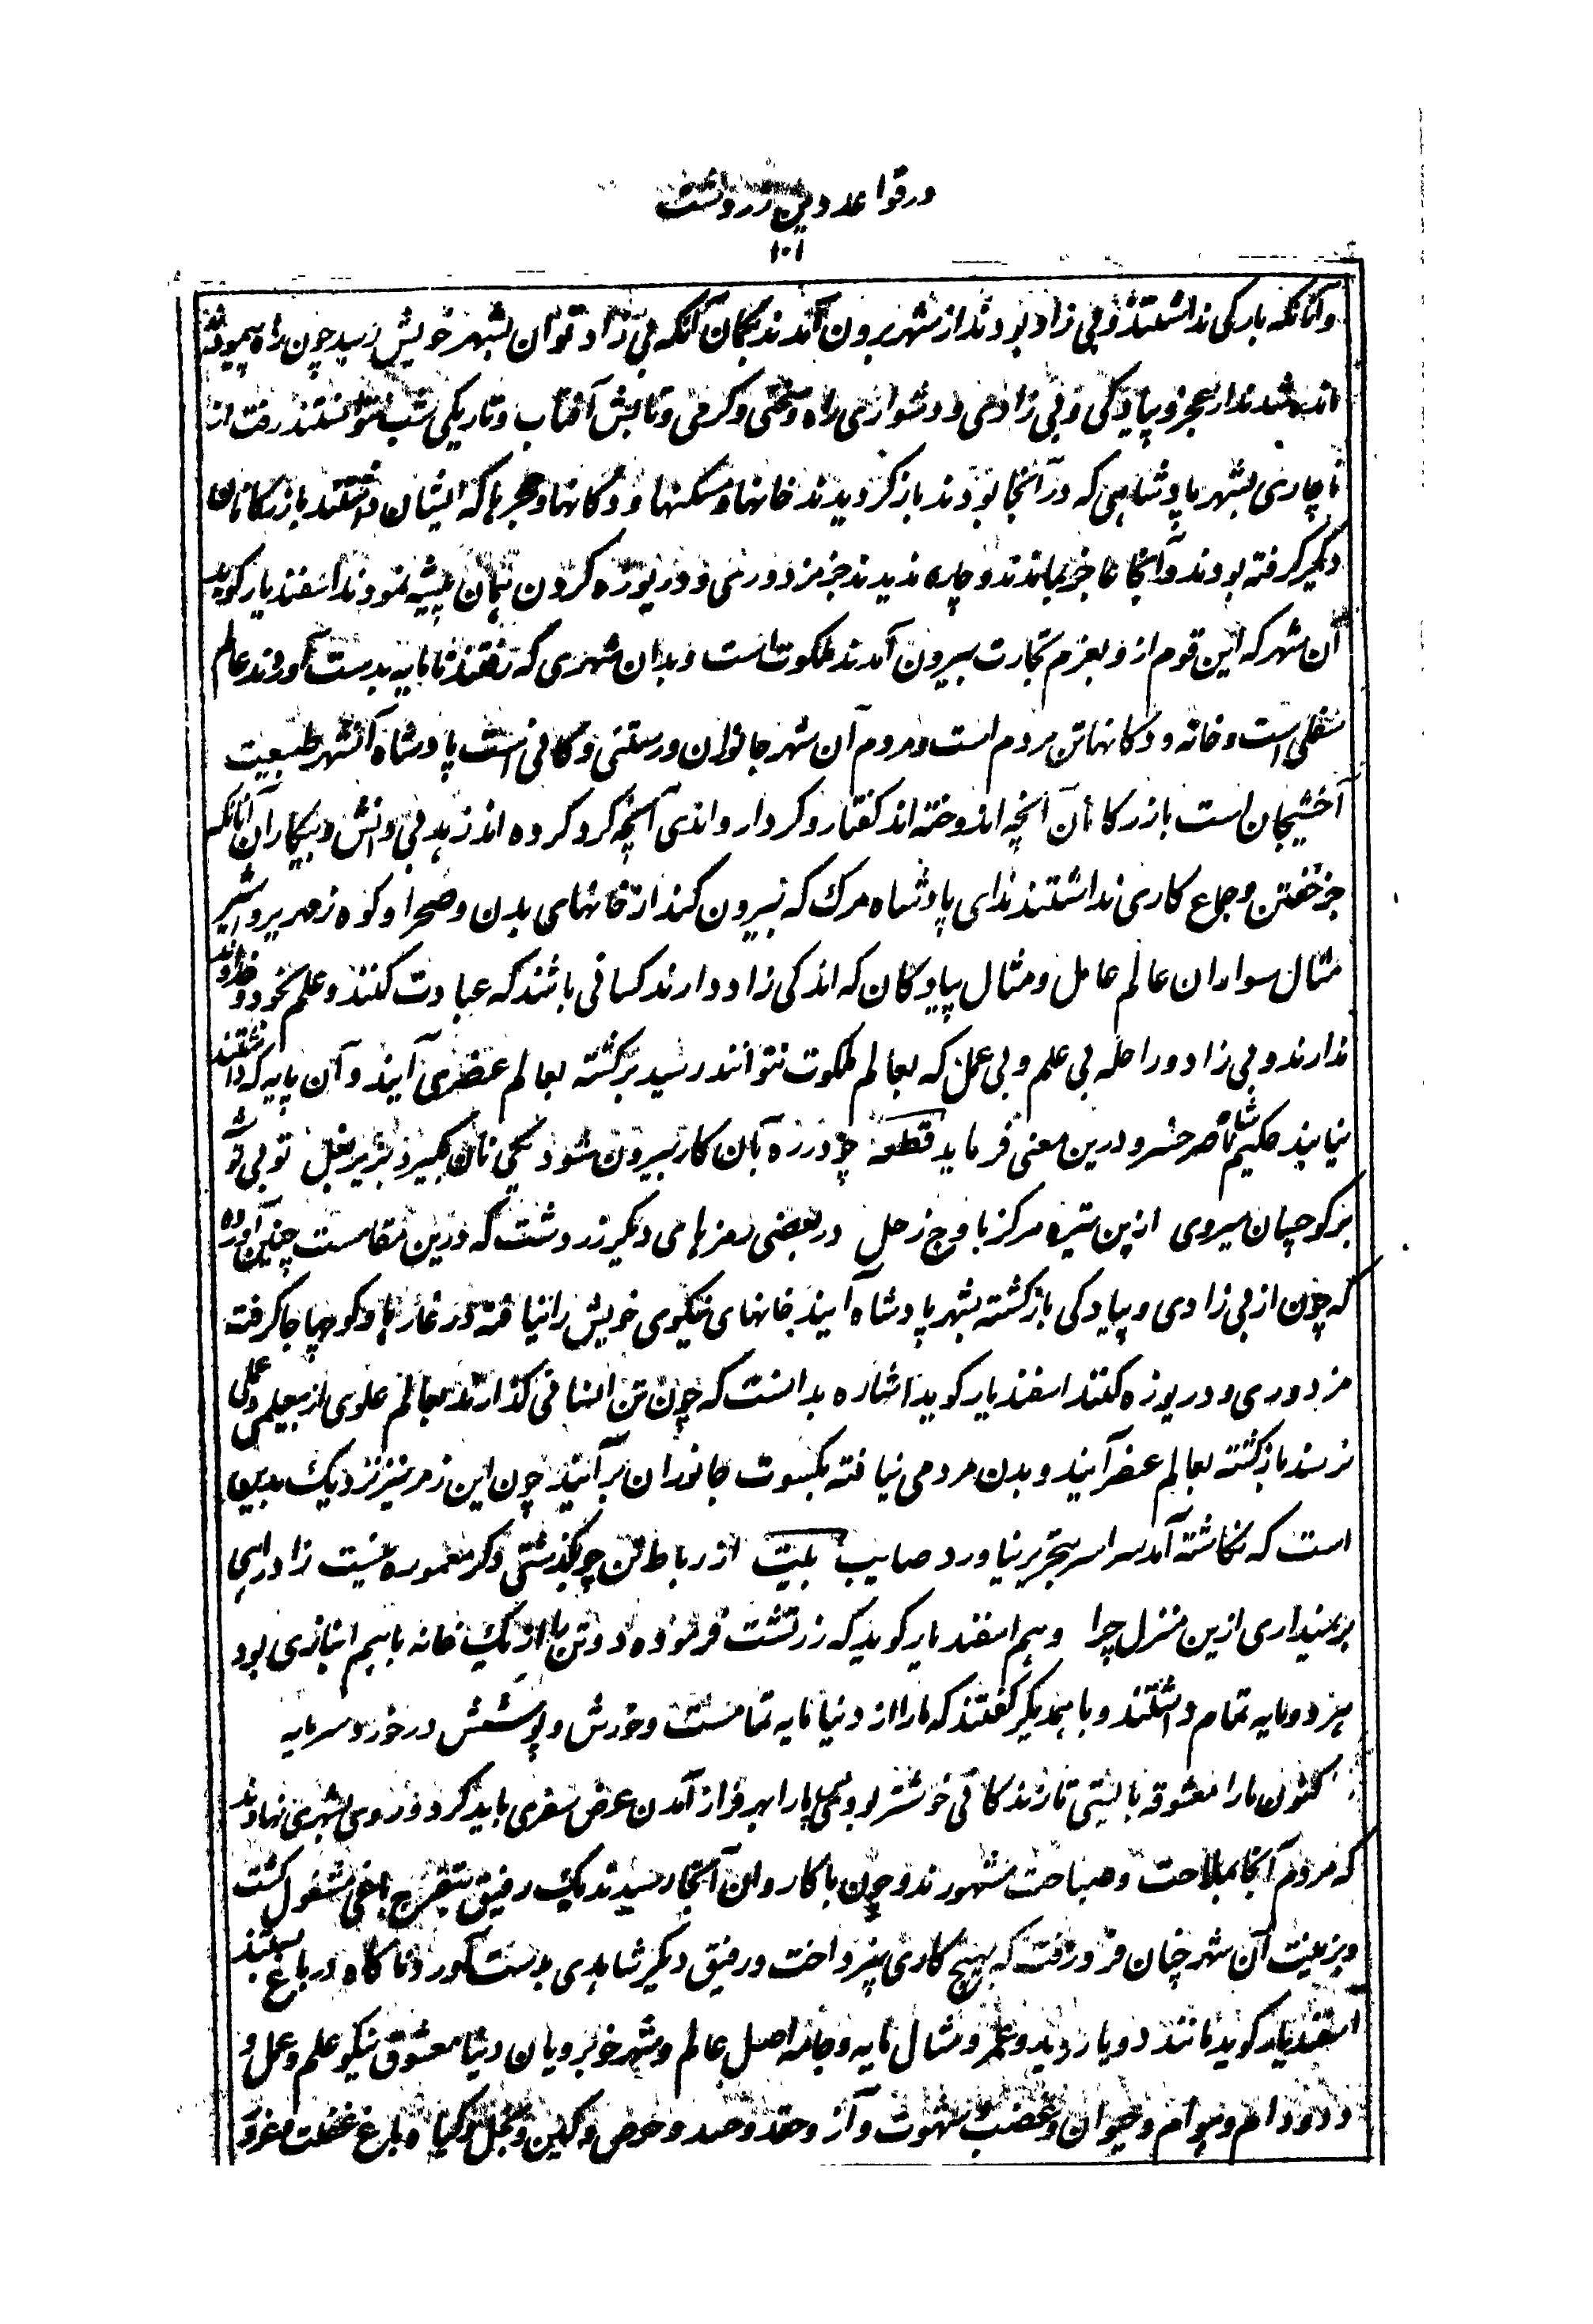 در قواعد دین زردشت
۱۰۱
و آنانکه بارکی نداشتند و بی زاد بودند از شهر برون آمدند بکمان آنکه بی زاد توان بشهر خویش رسید چون راه پیمودند
مانده شدند از عجز و پیادکی و بی زادی و دشواری راه و سختی و کرمی و تابش آفتاب و تاریکی شب نتوانستند رفت از
ناچاری بشهر پادشاهی که در آنجا بودند باز کردیدند خانها و مسکنها و دکانها و حجرها که ایشان داشتند بازرکانان
دیکر کرفته بودند و آنجا عاجز بماندند و چاره ندیدند جز مزدوری و دریوزه کردن همان پیشه نمودند اسفندیار کوید
آن شهر که این قوم از و بعزم تجارت بیرون آمدند ملکوت است و بدان شهری که رفتند تا مایه بدست آورند عالم
سفلی است و خانه و دکانها تن مردم است و مردم آن شهر جانوران و رستنی و کانی است پادشاه آنشهر طبیعت
آخشیجان است بازرکانان آنچه اندوخته اند کفتار و کردار و اندی آنچه کرد کرده اند زهد بی دانش و بیکاران آنانکه
جز خفتن و جماع کاری نداشتند ندای پادشاه مرک که بیرون کند از خانهای بدن و صحرا و کوه زمهریر و اثیر
مثال سواران عالم عامل و مثال پیادکان که اندکی زاد دارند کسانی باشند که عبادت کنند و علم بخود و خداوند
ندارند و بی زاد و راحله بی علم و بی عمل که بعالم ملکوت نتوانند رسید برکشته بعالم عنصری آیند و آن پایه که داشتند
نیابند حکیم شاه ناصر خسرو درین معنی فرماید قطعه چو درزه بآن کار بیرون شود یکی نان بکیرد بزیر بغل تو بی توشه
بر کو چسان میروی ازین تیره مرکز باوج زحل در بعضی رمزهای دیکر زردشت که درین مقامست چنین آورده
که چون از بی زادی و پیادکی بازکشته بشهر پادشاه آیند خانهای نیکوی خویش را نیافته در غارها و کوهها جا کرفته
مزدوری و دریوزه کنند اسفندیار کوید اشاره بدانست که چون تن انسانی کذارند بعالم علوی از بیعلمی و عملی
نرسند بازکشته بعالم عنصر آیند و بدن مردمی نیافته بکسوت جانوران برآیند چون این رمز نیز نزدیک بدینها
است که نکاشته آمد سراسر بتحریر نیاورد صایب بیت از رباط تن چو بکذشتی دکر معموره نیست زاد راهی
برنمیداری ازین منزل چرا و هم اسفندیار کوید که زرتشت فرموده دو تن را از یک خانه با هم انبازی بود
هر دو مایه تمام داشتند و با همدیکر کفتند که ما را از دنیا مایه تمامست و خورش و پوشش در خور و سرمایه
کنون ما را معشوقه بایستی تا زندکانی خوشتر بودی ما را بهر فراز آمدن عرض سفری باید کرد و روی بشهری نهادند
که مردم آنجا بملاحت و صباحت مشهورند و چون با کاروان آنجا رسیدند یک رفیق بتفرج باغی مشغول کشت
و بزینت آن شهر چنان فرو رفت که بهیچ کاری نپرداخت و رفیق دیکر شاهدی بدست آورد ناکاه در باغ بستند
اسفندیار کوید مانند دو یار زید و عمرو مثال مایه و جامه اصل عالم و شهر خوبرویان دنیا معشوق نیکو علم و عمل و
دد و دام و هوام و حیوان و غضب و شهوت و آز و حقد و حسد و حرص و کین و بخل و کیا و باغ غفلت و غرور